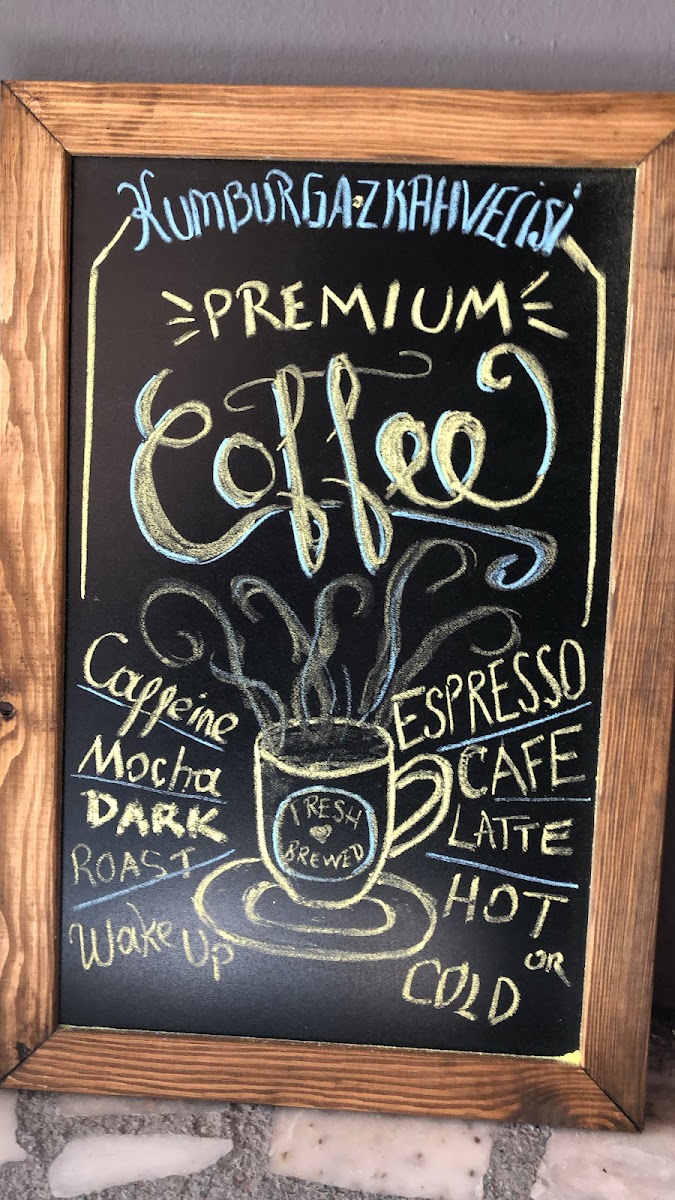 KUMBURGAZ KAHVECİSİ
PREMIUM
Coffee
Caffeine
Mocha
DARK
ROAST
Wake Up
FRESH
BREWED
ESPRESSO
CAFE
LATTE
HOT
OR
COLD